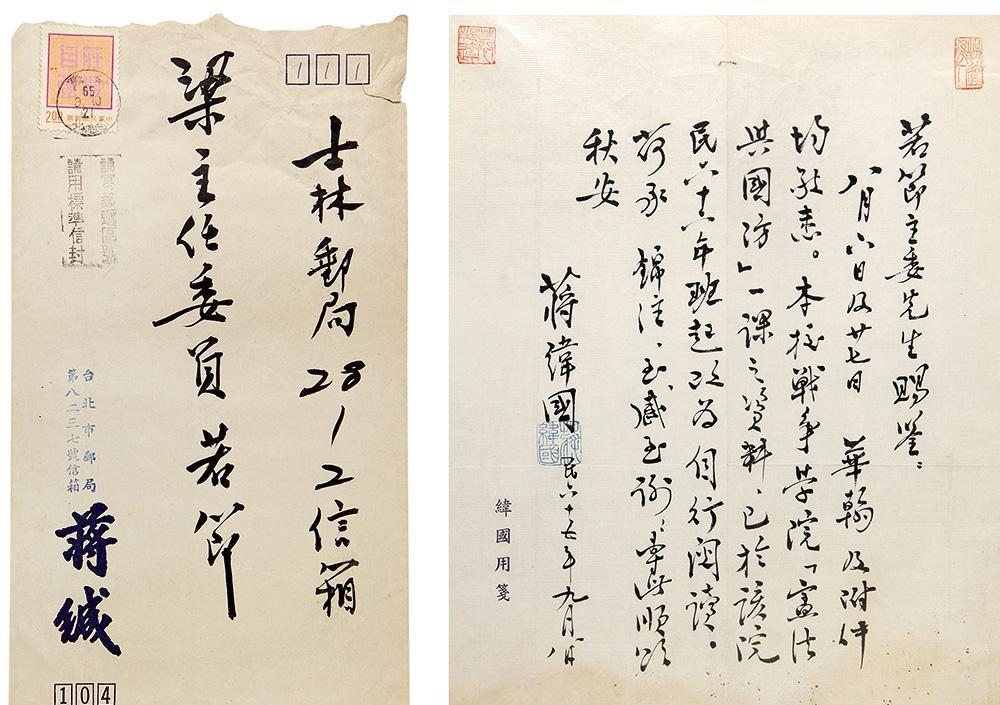 111
士林郵局28/2信箱
梁主任委員 若節
2.00
65
請寫郵遞區號
請用標準信封
台北市郵局
第八二三七號信箱
蔣緘
104
若節主委先生賜鑒:
八月六日及廿七日 華翰及附件
均敬悉。本校戰爭學院「憲法
與國防」一課之資料、已於該院
民六十六年班起改為自行閱讀。
荷承 錦注、至感至謝、專此順頌
秋安
蔣緯國 民六十七年九月八日
緯國用箋